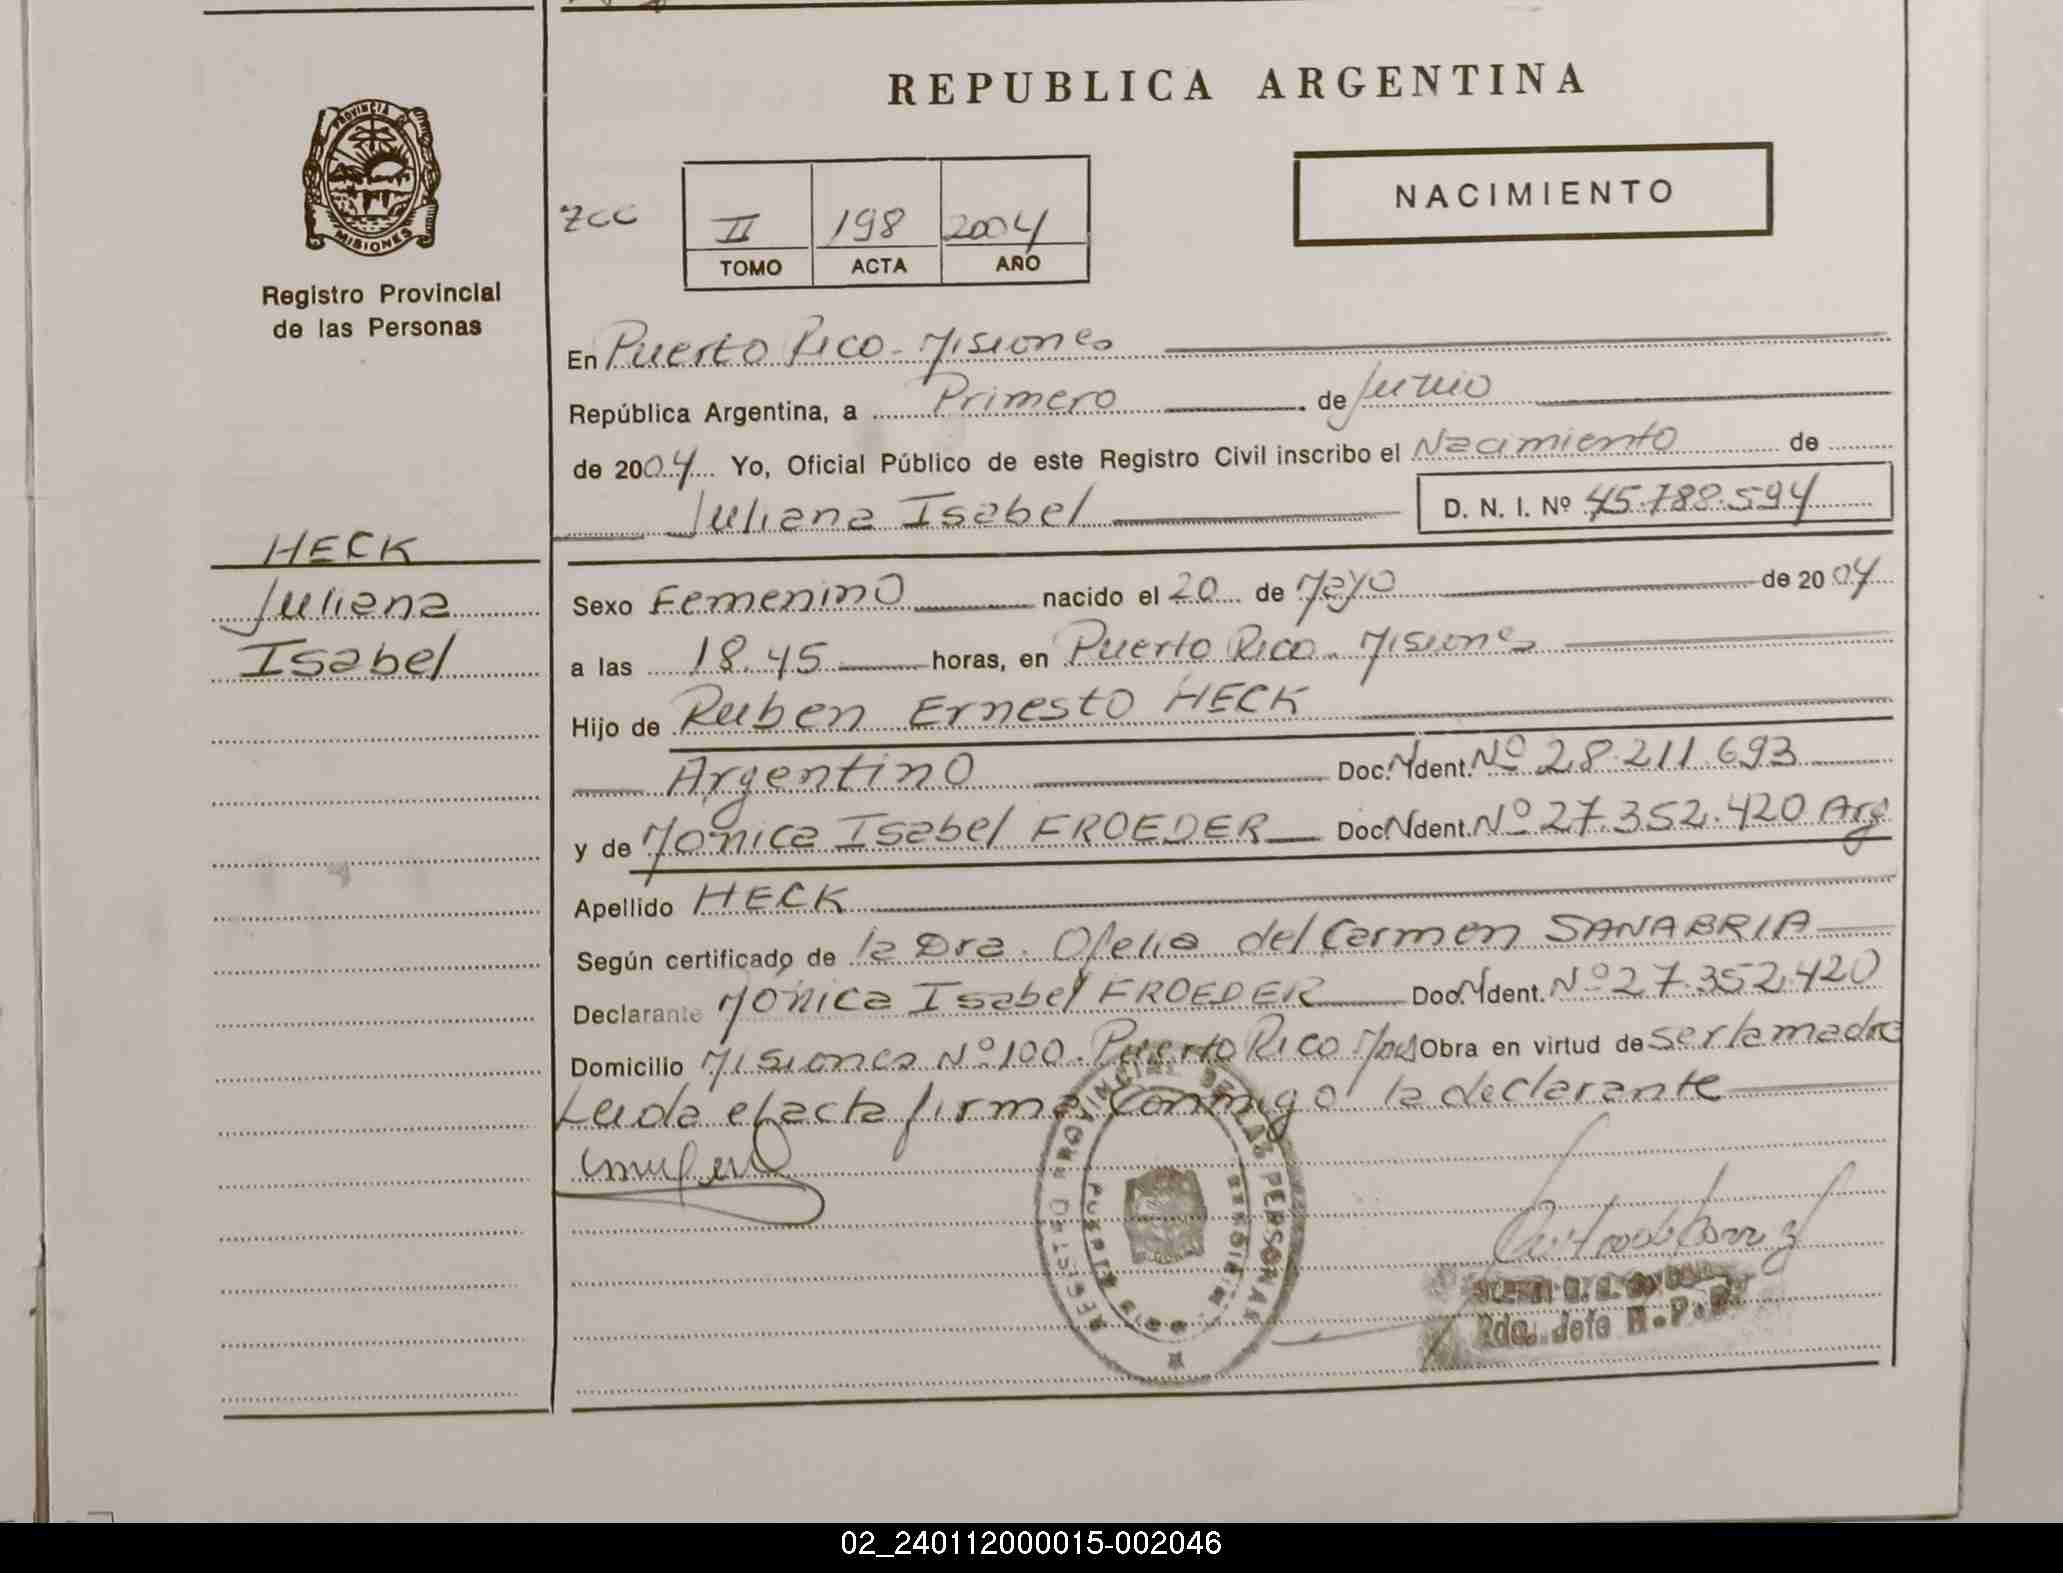 REPUBLICA ARGENTINA
PROVINCIA DE
MISIONES
Registro Provincial
de las Personas
NACIMIENTO
II 198 2004
TOMO ACTA AÑO
En Puerto Rico - Misiones
República Argentina, a Primero de Junio
de 2004 Yo, Oficial Público de este Registro Civil inscribo el Nacimiento de
Juliana Isabel D. N. I. Nº 45.788.594
HECK
Juliana
Isabel
Sexo Femenino nacido el 20 de Mayo de 2004
a las 18.45 horas, en Puerto Rico - Misiones
Hijo de Ruben Ernesto HECK
Argentino Doc. N Ident. Nº 28.211.693
y de Mónica Isabel FROEDER Doc N Ident. Nº 27.352.420 Arg
Apellido HECK
Según certificado de la Dra. Ofelia del Carmen SANABRIA
Declarante Mónica Isabel FROEDER Doc. N Ident. Nº 27.352.420
Domicilio Misiones Nº 100. Puerto Rico Mnes Obra en virtud de ser la madre
Leida el acta firma conmigo la declarante
REGISTRO PROVINCIAL DE LAS PERSONAS
PUERTO RICO
Jefe R.P.P.
02_240112000015-002046